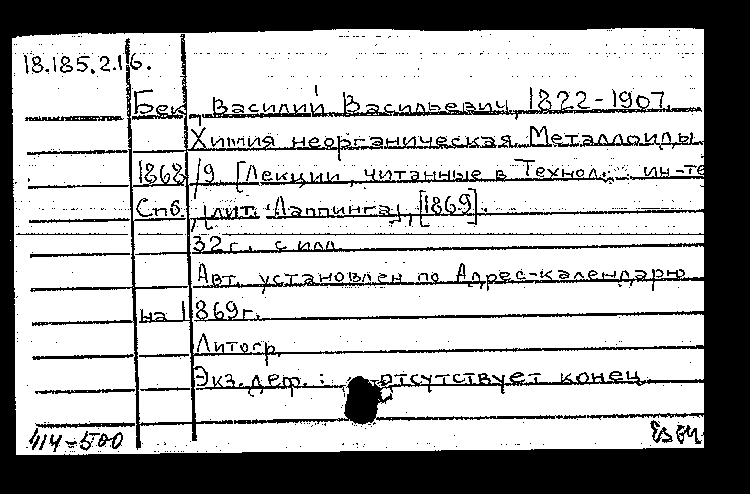 18.185.2.16.
Бек, Василий Васильевич, 1822-1907.
Химия неорганическая. Металлоиды.
1868/9 [Лекции, читанные в Технол. ин-те
Спб., [лит. Лаппинга], [1869].
32 с., с илл.
Авт. установлен по Адрес-календарю
на 1869 г.
Литогр.
Экз. деф.: отсутствует конец
414-500